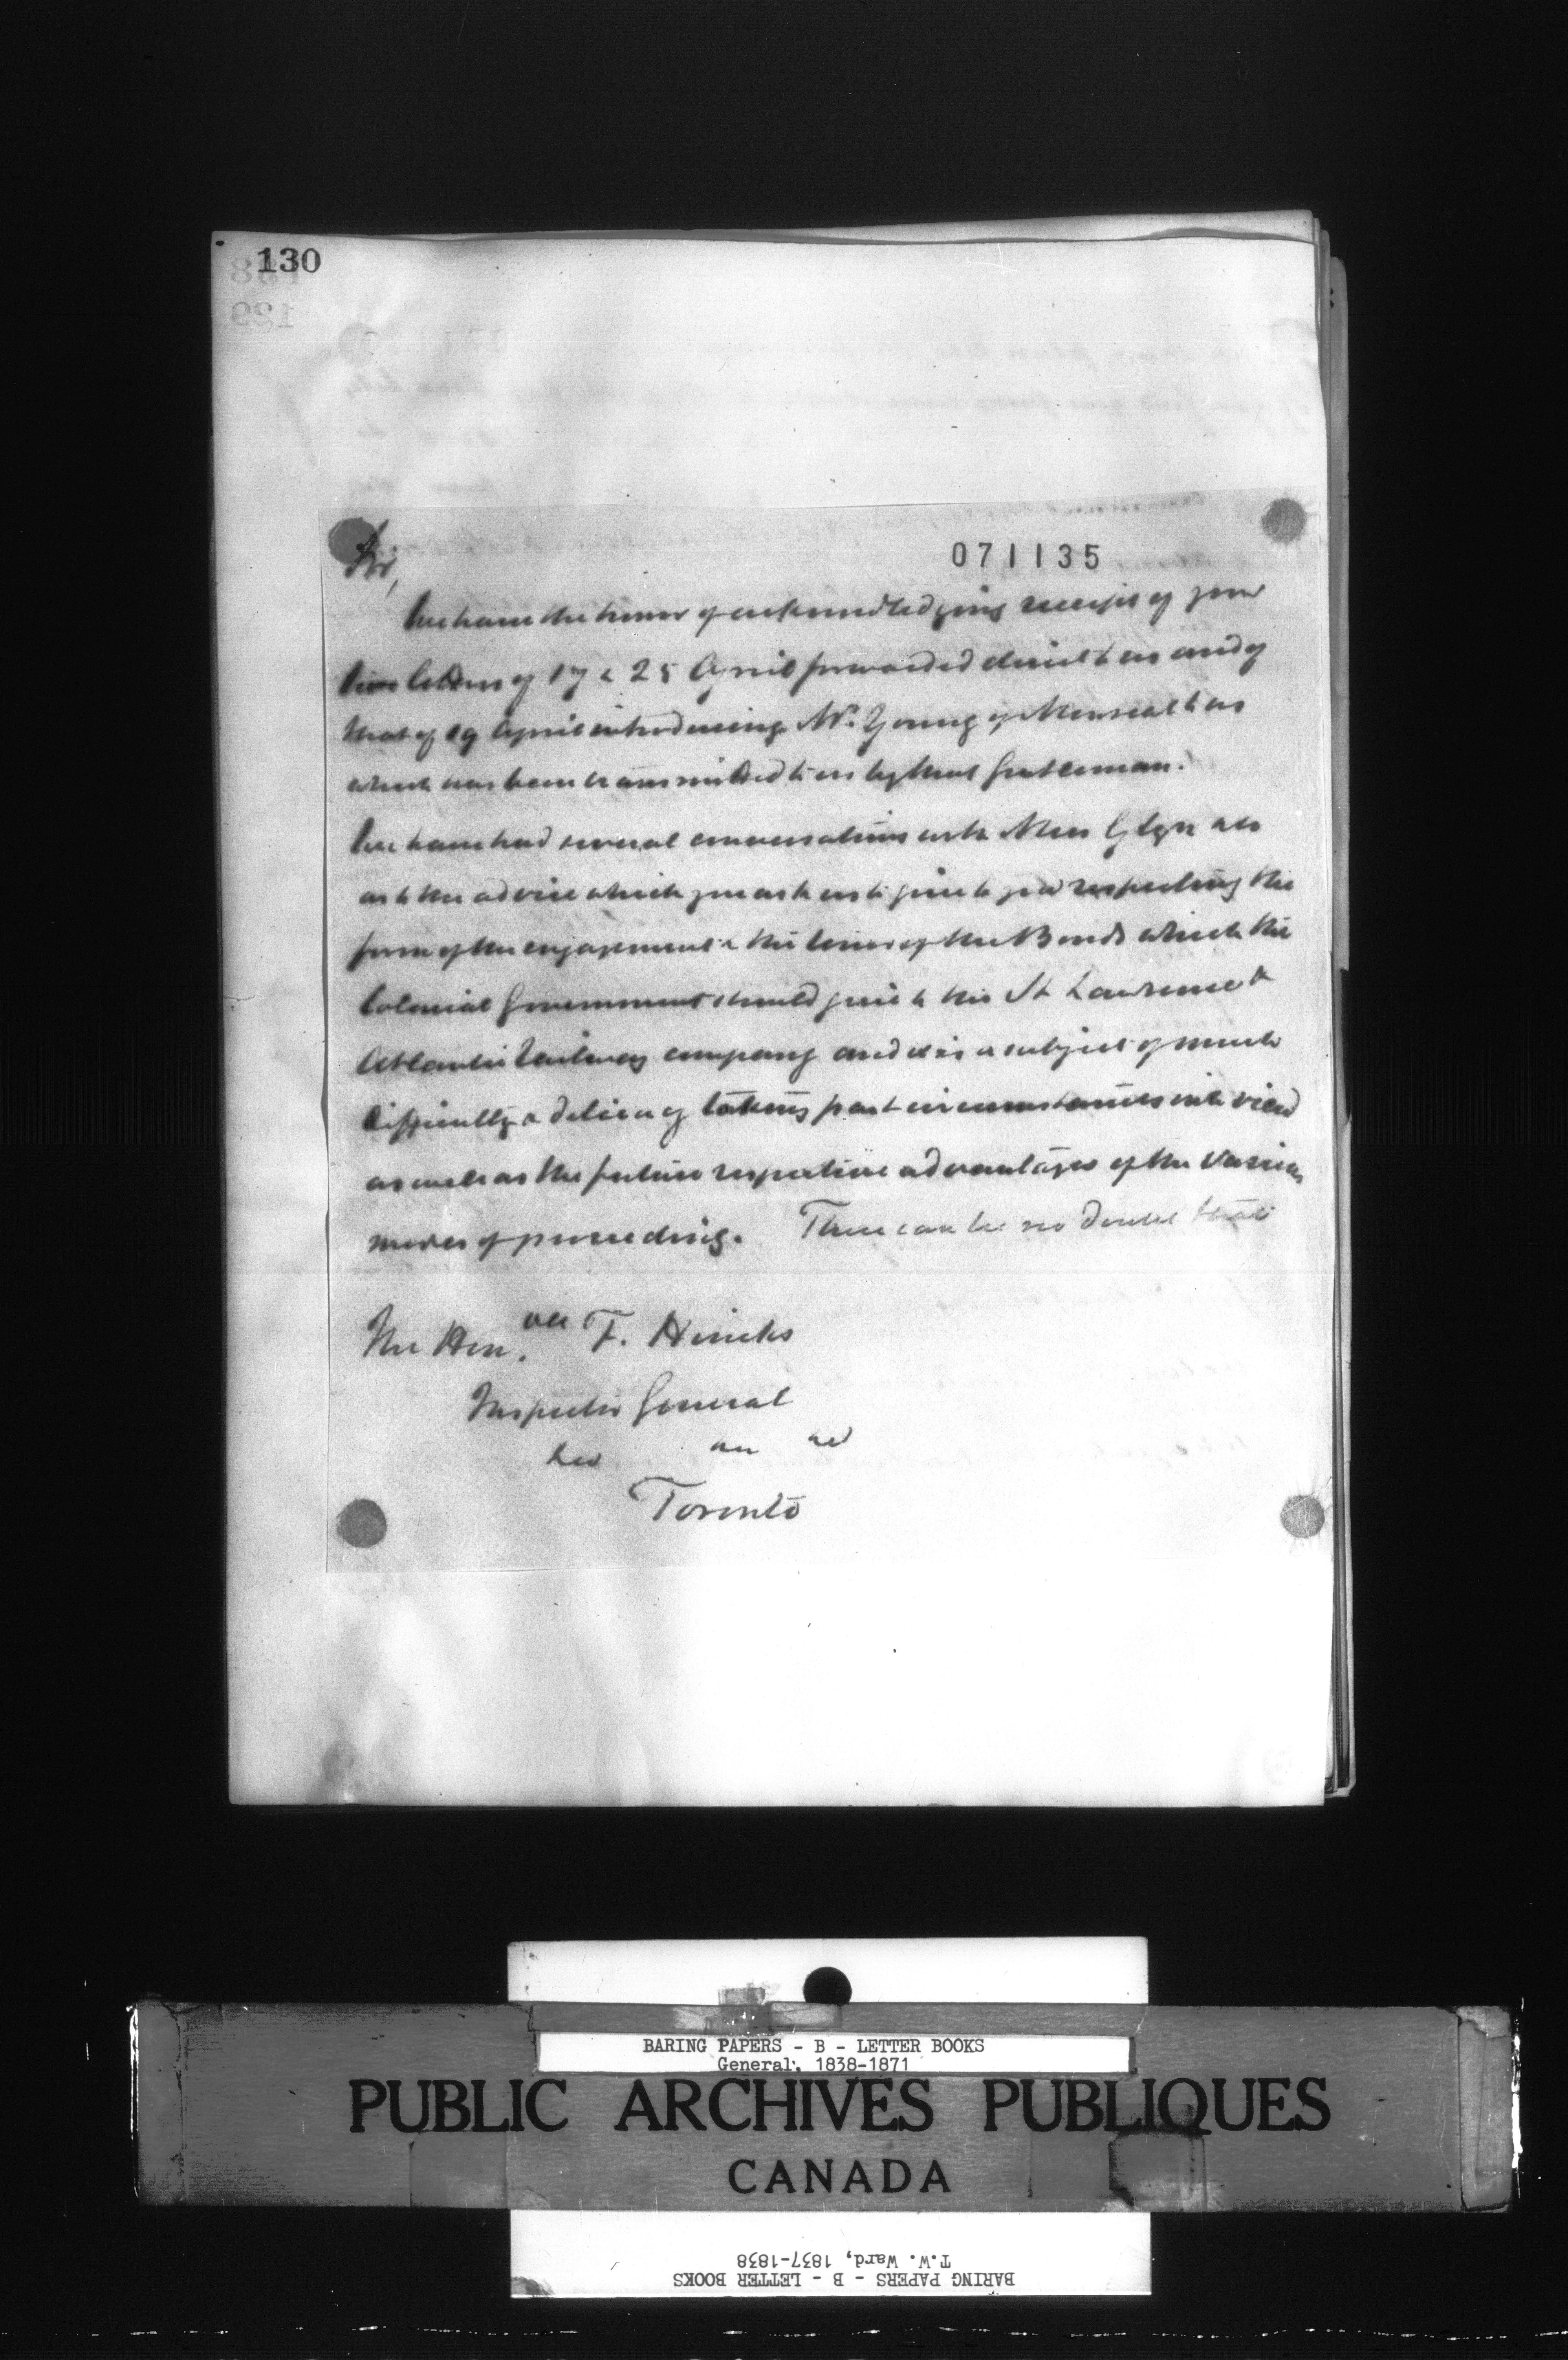 130
071135
Sir,
We have the honor of acknowledging receipt of your
two letters of 17 & 25 April forwarded direct to us and of
that of 19 April introducing Mr. Young of Montreal to us
which has been transmitted to us by that Gentleman.
We have had several conversations with Mess Glyn
as to the advice which you ask us to give to you respecting the
form of the engagement & the tenor of the Bonds which the
Colonial Government should give to the St Lawrence &
Atlantic Railway company and it is a subject of much
difficulty & delicacy taking past circumstances into view
as well as the future respective advantages of the various
modes of proceeding. There can be no doubt that
The Hon.ble F. Hincks
Inspector General
Toronto
BARING PAPERS - B - LETTER BOOKS
General, 1838-1871
PUBLIC ARCHIVES PUBLIQUES
CANADA
T.W. Ward, 1837-1838
BARING PAPERS - B - LETTER BOOKS